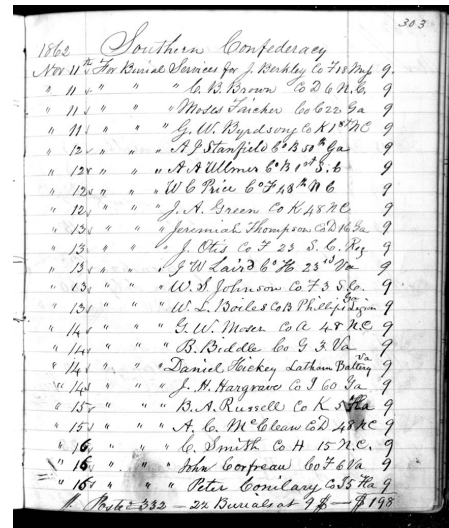 303
1862 Southern Confederacy
Nov 11th For Burial Services for J. Berkley Co F 18 Misp 9.
" 11 " " " C. B. Brown Co D 6 N.C. 9
" 11 " " " Moses Faicher Co C 22 Ga 9
" 11 " " " G. W. Byrdsong Co K 1st NC 9
" 12 " " " A J Stanfield Co B 50th Ga 9
" 12 " " " A A Ulmer Co B 1st S. C 9
" 12 " " " W C Price Co F 48th N C 9
" 12 " " " J. A. Green Co K 48 NC 9
" 13 " " " Jeremiah Thompson Co D 16 Ga 9
" 13 " " " J. Otis Co F 23 S. C. Reg 9
" 13 " " " J W Laird Co H. 23rd Va 9
" 13 " " " W. S. Johnson Co F 3 S Co. 9
" 13 " " " W. L. Boiles Co B Phillips Ga Legion 9
" 14 " " " G. W. Moser Co A 48 NC 9
" 14 " " " B. Biddle Co G 3. Va 9
" 14 " " " Daniel Hickey Latham Battery Va 9
" 14 " " " J. H. Hargrave Co I 60 Ga 9
" 15 " " " B. A. Russell Co K 5 Fla 9
" 15 " " " A. C. McClean Co D 48 NC 9
" 16 " " " C. Smith Co H 15 N.C. 9
" 16 " " " John Corfreau Co F 6 Va 9
" 16 " " " Peter Conilary Co I 5 Fla 9
Posted 332 — 22 Burials at 9 $ — $ 198